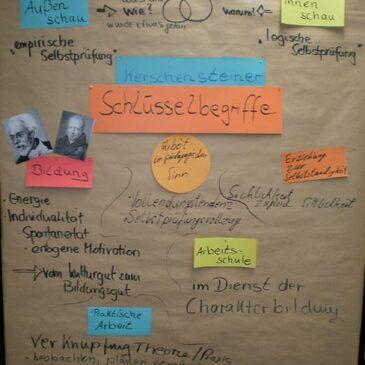 Außen
schau
wie?
wurde etwas getan
warum?
innen
schau
"empirische
Selbstprüfung"
"logische
Selbstprüfung"
Kerschensteiner
Schlüsselbegriffe
Arbeit
im pädagogischen
Sinn
Bildung
Erziehung
zur
Selbstständigkeit
• Energie
• Individualität
Spontanetät
• enbogene Motivation
⇒ vom Kulturgut zum
Bildungsgut
• Vollendungstendenz
• Selbstprüfungsvollzug
Sachlichkeit
Arbeits-
schule
im Dienst der
Charakterbildung
Praktische
Arbeit
Verknüpfung Theorie/Praxis
- beobachten, planen